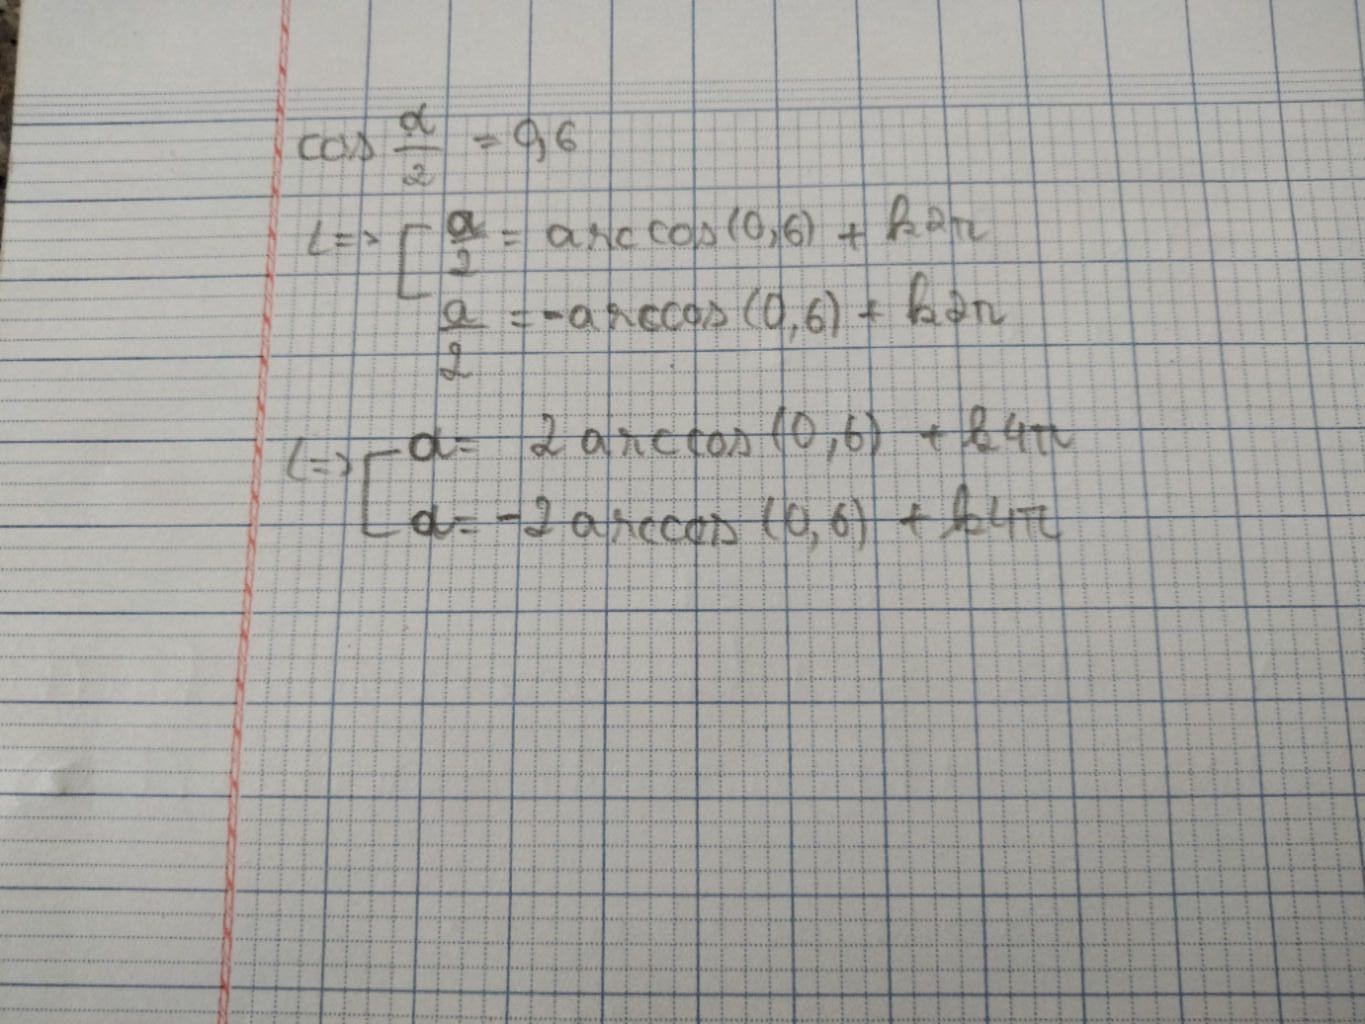 cos α/2 = 0,6
<=> [ α/2 = arccos(0,6) + k2π
α/2 = -arccos(0,6) + k2π
<=> [ α = 2 arccos(0,6) + k4π
α = -2 arccos(0,6) + k4π